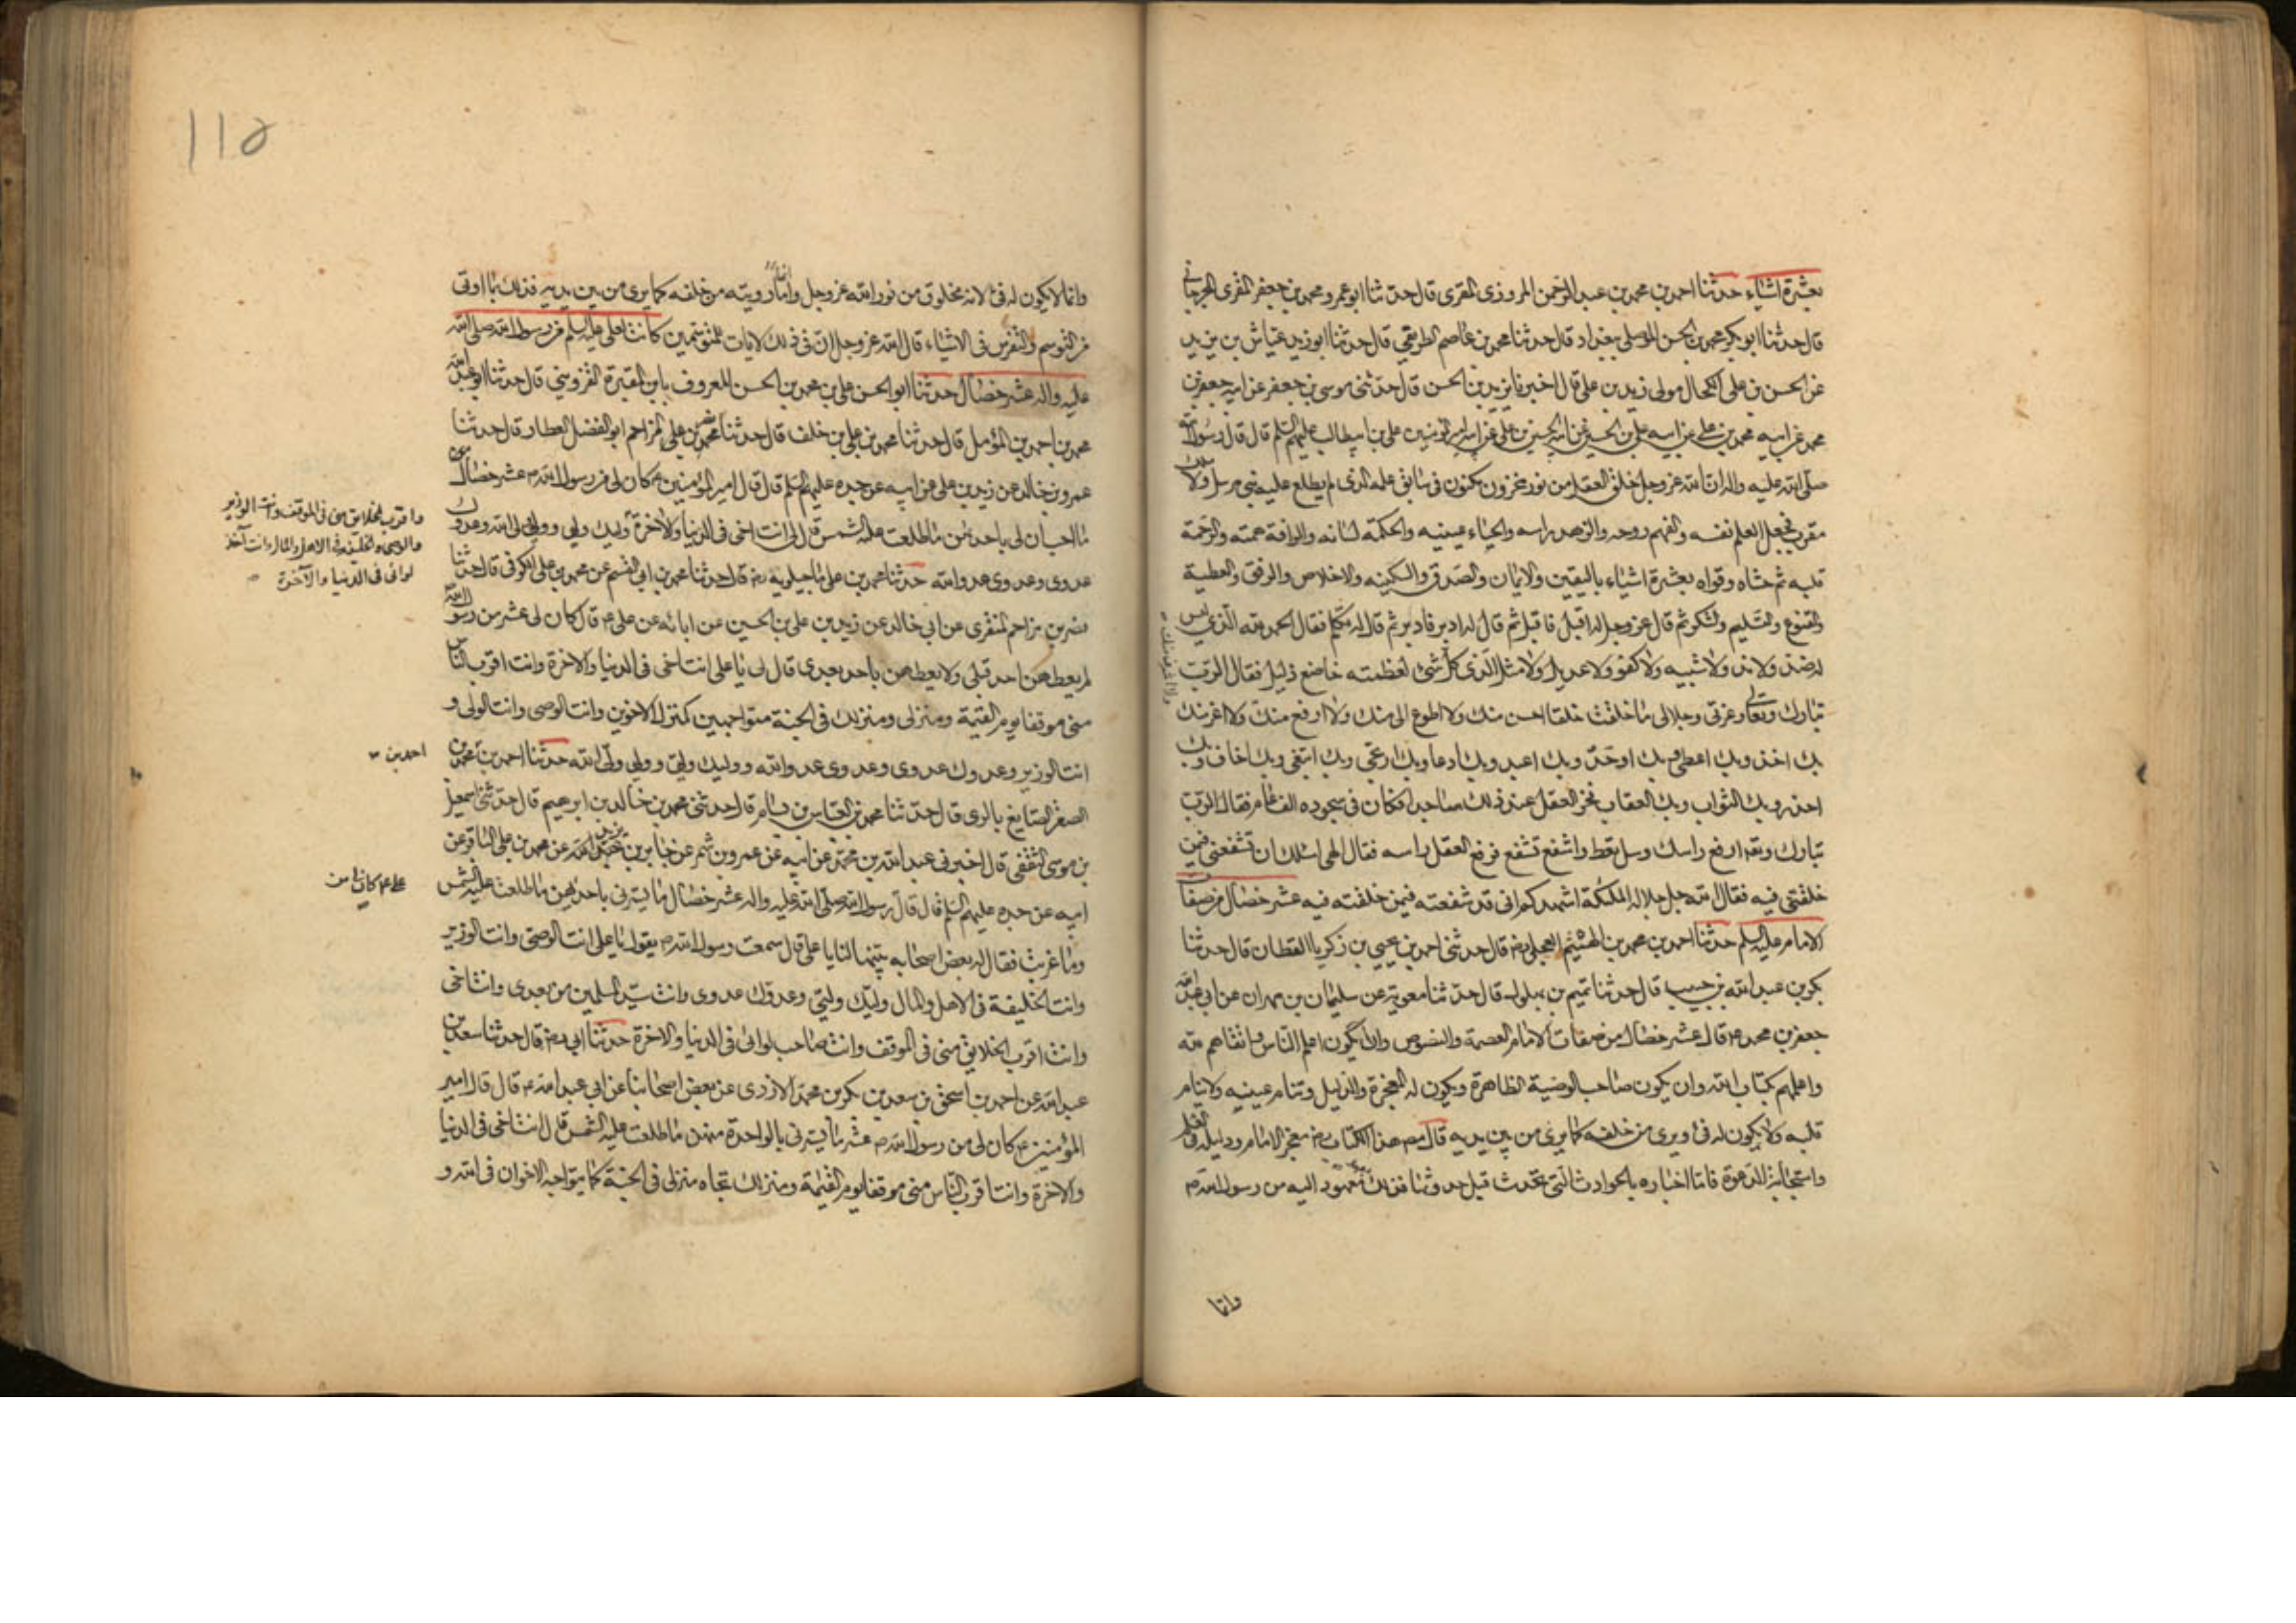 بعشرة اشياء حدثنا احمد بن محمد بن عبد الرحمن المروزى المقرى قال حدثنا ابو عمرو محمد بن جعفر المقرى الجرجانى
قال حدثنا ابو بكر محمد بن الحسن الموصلى ببغداد قال حدثنا محمد بن عاصم الطريفى قال حدثنا ابو زيد عياش بن يزيد
عن الحسن بن على الكحال مولى زيد بن على قال اخبرنا يزيد بن الحسن قال حدثنى موسى بن جعفر عن ابيه جعفر بن
محمد عن ابيه محمد بن على عن ابيه على بن الحسين عن ابيه الحسين بن على عن ابيه امير المؤمنين على بن ابيطالب عليهم السلم قال قال رسول الله
صلى الله عليه واله ان الله عز وجل خلق العقل من نور مخزون مكنون فى سابق علمه الذى لم يطلع عليه نبى مرسل ولا ملك
مقرب فجعل العلم نفسه والفهم روحه والزهد راسه والحياء عينيه والحكمة لسانه والرافة همته والرحمة
قلبه ثم حشاه وقواه بعشرة اشياء باليقين والايمان والصدق والسكينه والاخلاص والرفق والعطية
والقنوع والتسليم والشكر ثم قال عز وجل له اقبل فاقبل ثم قال له ادبر فادبر ثم قال له تكلم فقال الحمد لله الذى ليس
له ضد ولا ند ولا شبيه ولا كفو ولا عديل ولا مثل الذى كل شئ لعظمته خاضع ذليل فقال الرب
تبارك وتعالى وعزتى وجلالى ما خلقت خلقا احسن منك ولا اطوع الى منك ولا ارفع منك ولا اعز منك
بك اخذ وبك اعطى وبك اوحد وبك اعبد وبك ادعا وبك ارتجى وبك ابتغى وبك اخاف وبك
احذر وبك الثواب وبك العقاب فخر العقل عند ذلك ساجدا فكان فى سجوده الف عام فقال الرب
تبارك وتعه ارفع راسك وسل تعط واشفع تشفع فرفع العقل راسه فقال الهى اسئلك ان تشفعنى فيمن
خلقتنى فيه فقال الله جل جلاله لملئكته اشهدكم انى قد شفعته فيمن خلقته فيه عشر خصال من صفات
الامام عليه السلم حدثنا احمد بن محمد بن الهيثم العجلى رضه قال حدثنى احمد بن يحيى بن زكريا القطان قال حدثنا
بكر بن عبد الله بن حبيب قال حدثنا تميم بن بهلول قال حدثنا معوية عن سليمان بن مهران عن ابى عبد الله
جعفر بن محمد ع قال عشر خصال من صفات الامام العصمة والنصوص وان يكون اعلم الناس واتقاهم لله
واعلمهم بكتاب الله وان يكون صاحب الوصية الظاهرة ويكون له المعجزة والدليل وتنام عينيه ولا ينام
قلبه ولا يكون له فئ ويرى من خلفه كما يرى من بين يديه قال مصنف هذا الكتاب رضه معجز الامام ودليله فى العلم
واستجابة الدعوة فاما اخباره بالحوادث التى تحدث قبل حدوثها فذلك بعهد معهود اليه من رسول الله ص
وانما
وانما لا يكون له فئ لانه مخلوق من نور الله عز وجل واما رويته من خلفه كما يرى من بين يديه فذلك بما اوتى
من التوسم والتفرس فى الاشياء قال الله عز وجل ان فى ذلك لايات للمتوسمين كانت لعلى عليه السلم من رسول الله صلى الله
عليه واله عشر خصال حدثنا ابو الحسن على بن محمد بن الحسن المعروف بابن المقبرة القزوينى قال حدثنا ابو عبد الله
محمد بن احمد بن المؤمل قال حدثنا محمد بن على بن خلف قال حدثنا نصر بن على المزاحم ابو الفضل العطار قال حدثنا
عمرو بن خالد عن زيد بن على عن ابيه عن جده عليهم السلم قال قال امير المؤمنين ع كان لى من رسول الله ص عشر خصال
ما احب ان لى باحدهن ما طلعت عليه الشمس قال لى انت اخى فى الدنيا والاخرة وليك وليى وولى ولى الله وعدوك
عدوى وعدوى عدو الله حدثنا محمد بن على ماجيلويه رضه قال حدثنا محمد بن ابى القسم عن محمد بن على الكوفى قال حدثنا
نصر بن مزاحم المنقرى عن ابى خالد عن زيد بن على بن الحسين عن ابائه عن على ع قال كان لى عشر من رسول الله
لم يعطهن احد قبلى ولا يعطاهن احد بعدى قال لى يا على انت اخى فى الدنيا والاخرة وانت اقرب الناس
منى موقفا يوم القيمة ومنزلى ومنزلك فى الجنة متواجهين كمنزل الاخوين وانت الوصى وانت الولى و
انت الوزير وعدوك عدوى وعدوى عدو الله ووليك وليى ووليى ولى الله حدثنا احمد بن محمد بن
الصقر الصايغ بالرى قال حدثنا محمد بن العباس بن بسام قال حدثنى محمد بن خالد بن ابرهيم قال حدثنى اسمعيل
بن موسى الثقفى قال اخبرنى عبد الله بن محمد عن ابيه عن عمرو بن شمر عن جابر بن يزيد عن محمد بن على الباقر عن
ابيه عن جده عليهم السلم قال قال رسول الله صلى الله عليه واله عشر خصال ما يسرنى باحديهن ما طلعت عليه الشمس
وما غربت فقال له بعض اصحابه بينها لنا يا على قال سمعت رسول الله ص يقول يا على انت الوصى وانت الوزير
وانت الخليفة فى الاهل والمال وليك وليى وعدوك عدوى وانت سيد المسلمين من بعدى وانت اخى
وانت اقرب الخلايق منى فى الموقف وانت صاحب لوائى فى الدنيا والاخرة حدثنا ابى رضه قال حدثنا سعد بن
عبد الله عن احمد بن اسحق بن سعد بن بكر بن محمد الازدى عن بعض اصحابنا عن ابى عبد الله ع قال قال امير
المؤمنين ع كان لى من رسول الله ص عشر ما يسرنى بالواحدة منهن ما طلعت عليه الشمس قال انت اخى فى الدنيا
والاخرة وانت اقرب الناس منى موقفا يوم القيمة ومنزلك تجاه منزلى فى الجنة كما يتواجه الاخوان فى الله و
واقرب الخلايق منى فى الموقف وانت الوزير
والوصى والخليفة فى الاهل والمال وانت آخذ
لوائى فى الدنيا والآخرة
احمد بن
على ع كان لى من
١١٥